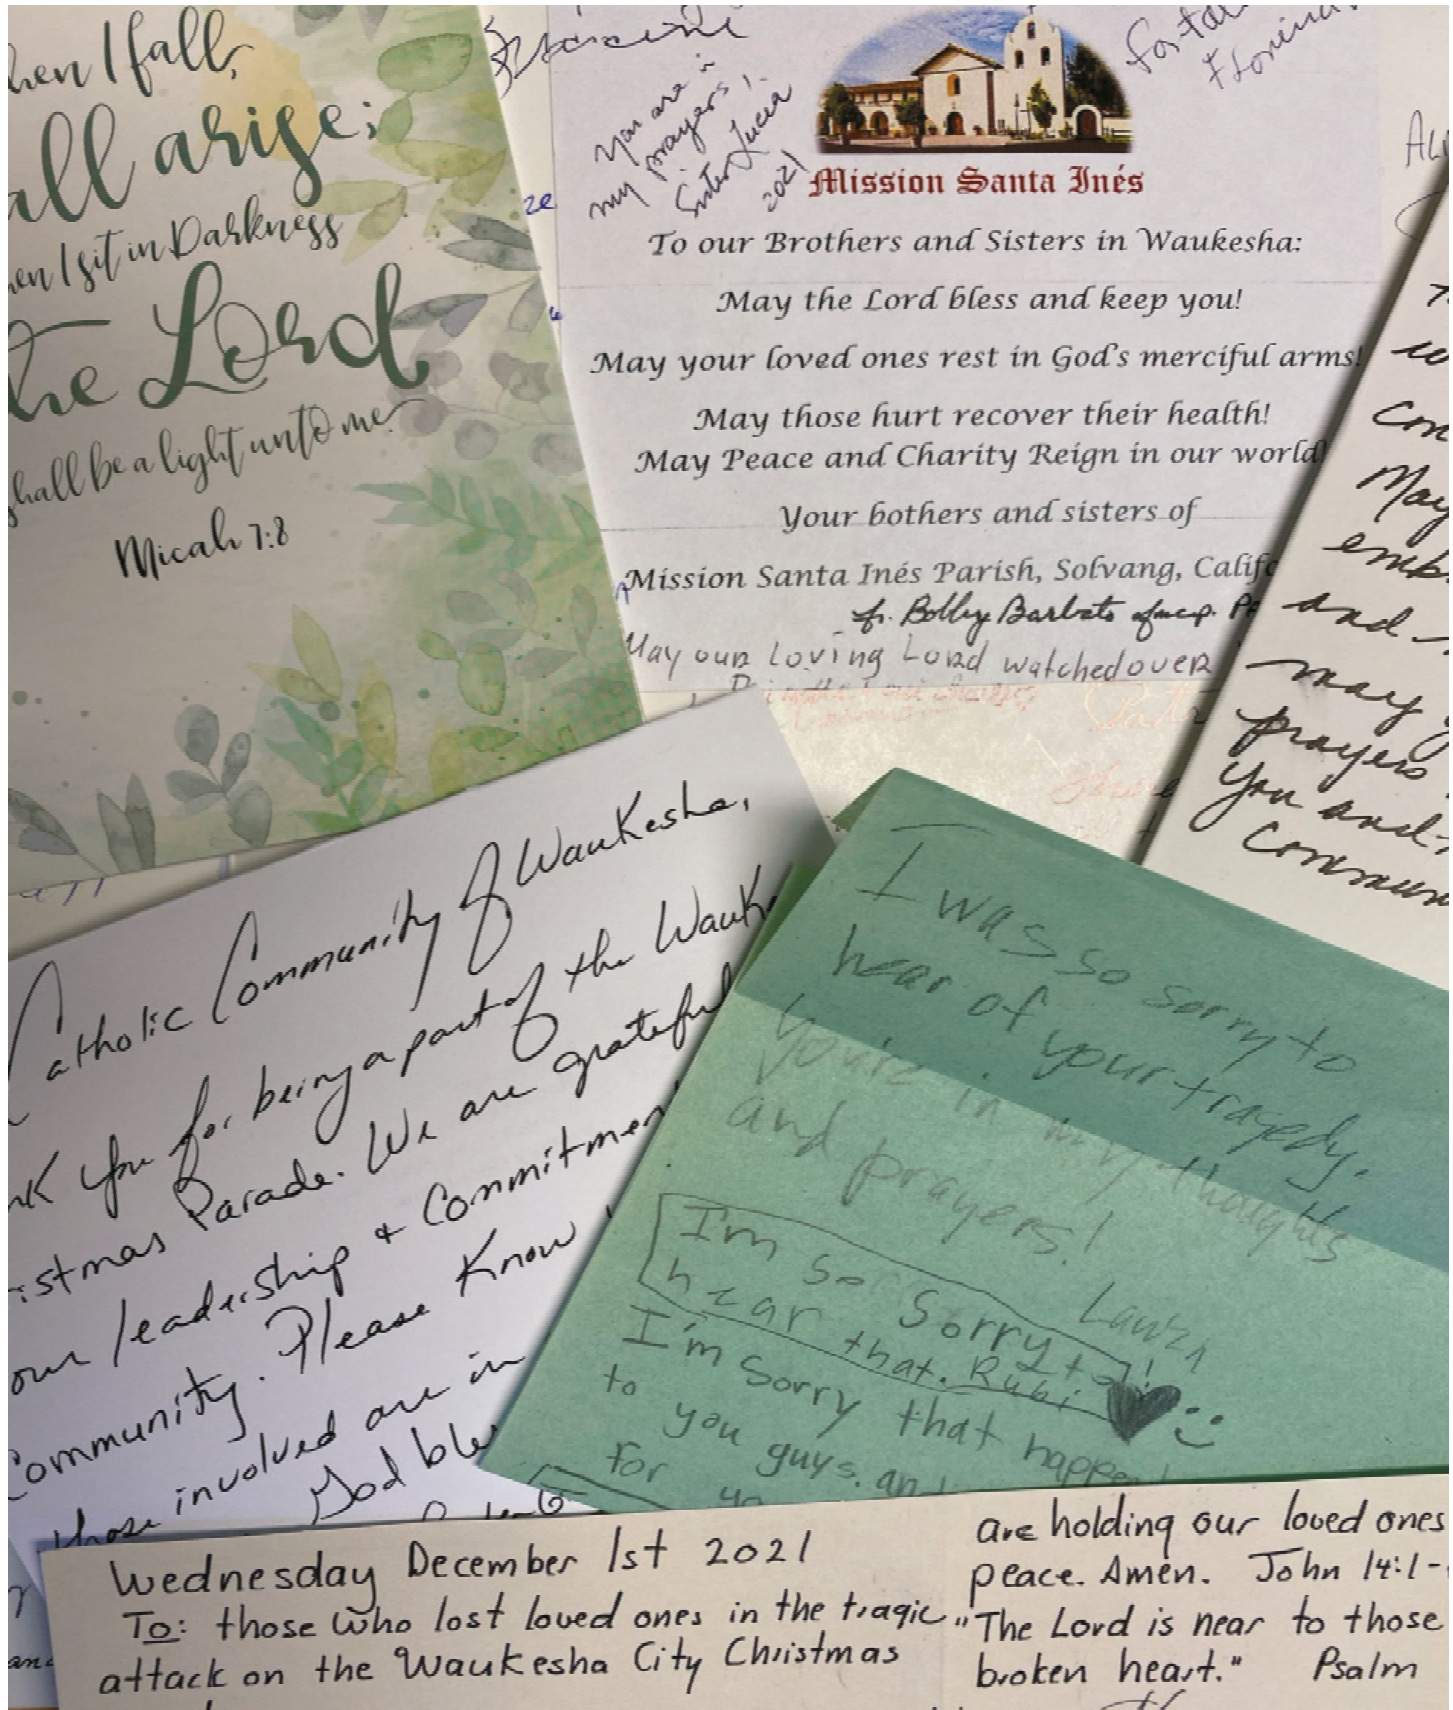 hen I fall,
all arise;
hen I sit in Darkness
the Lord
shall be a light unto me.
Micah 7:8
You are in
my prayers!
Sister Lucia
2021
Mission Santa Inés
To our Brothers and Sisters in Waukesha:
May the Lord bless and keep you!
May your loved ones rest in God's merciful arms!
May those hurt recover their health!
May Peace and Charity Reign in our world!
Your bothers and sisters of
Mission Santa Inés Parish, Solvang, Califo
fr. Bobby Barbato ofm cap. Pa
May our Loving Lord watched over
Con
May
emb
and
may y
prayers
you and
Commun
Catholic Community of Waukesha,
nk you for being a part of the Wauke
istmas Parade. We are grateful
our leadership + Commitmen
Community. Please Know
those involved are in
God ble
I was so sorry to
hear of your tragedy.
You're in my thoughts
and prayers!
Laura
I'm so sorry to
hear that. Rubi
I'm sorry that happe
to you guys. and
for yo
Wednesday December 1st 2021
To: those who lost loved ones in the tragic
attack on the Waukesha City Christmas
are holding our loved ones
peace. Amen. John 14:1-
"The Lord is near to those
broken heart." Psalm